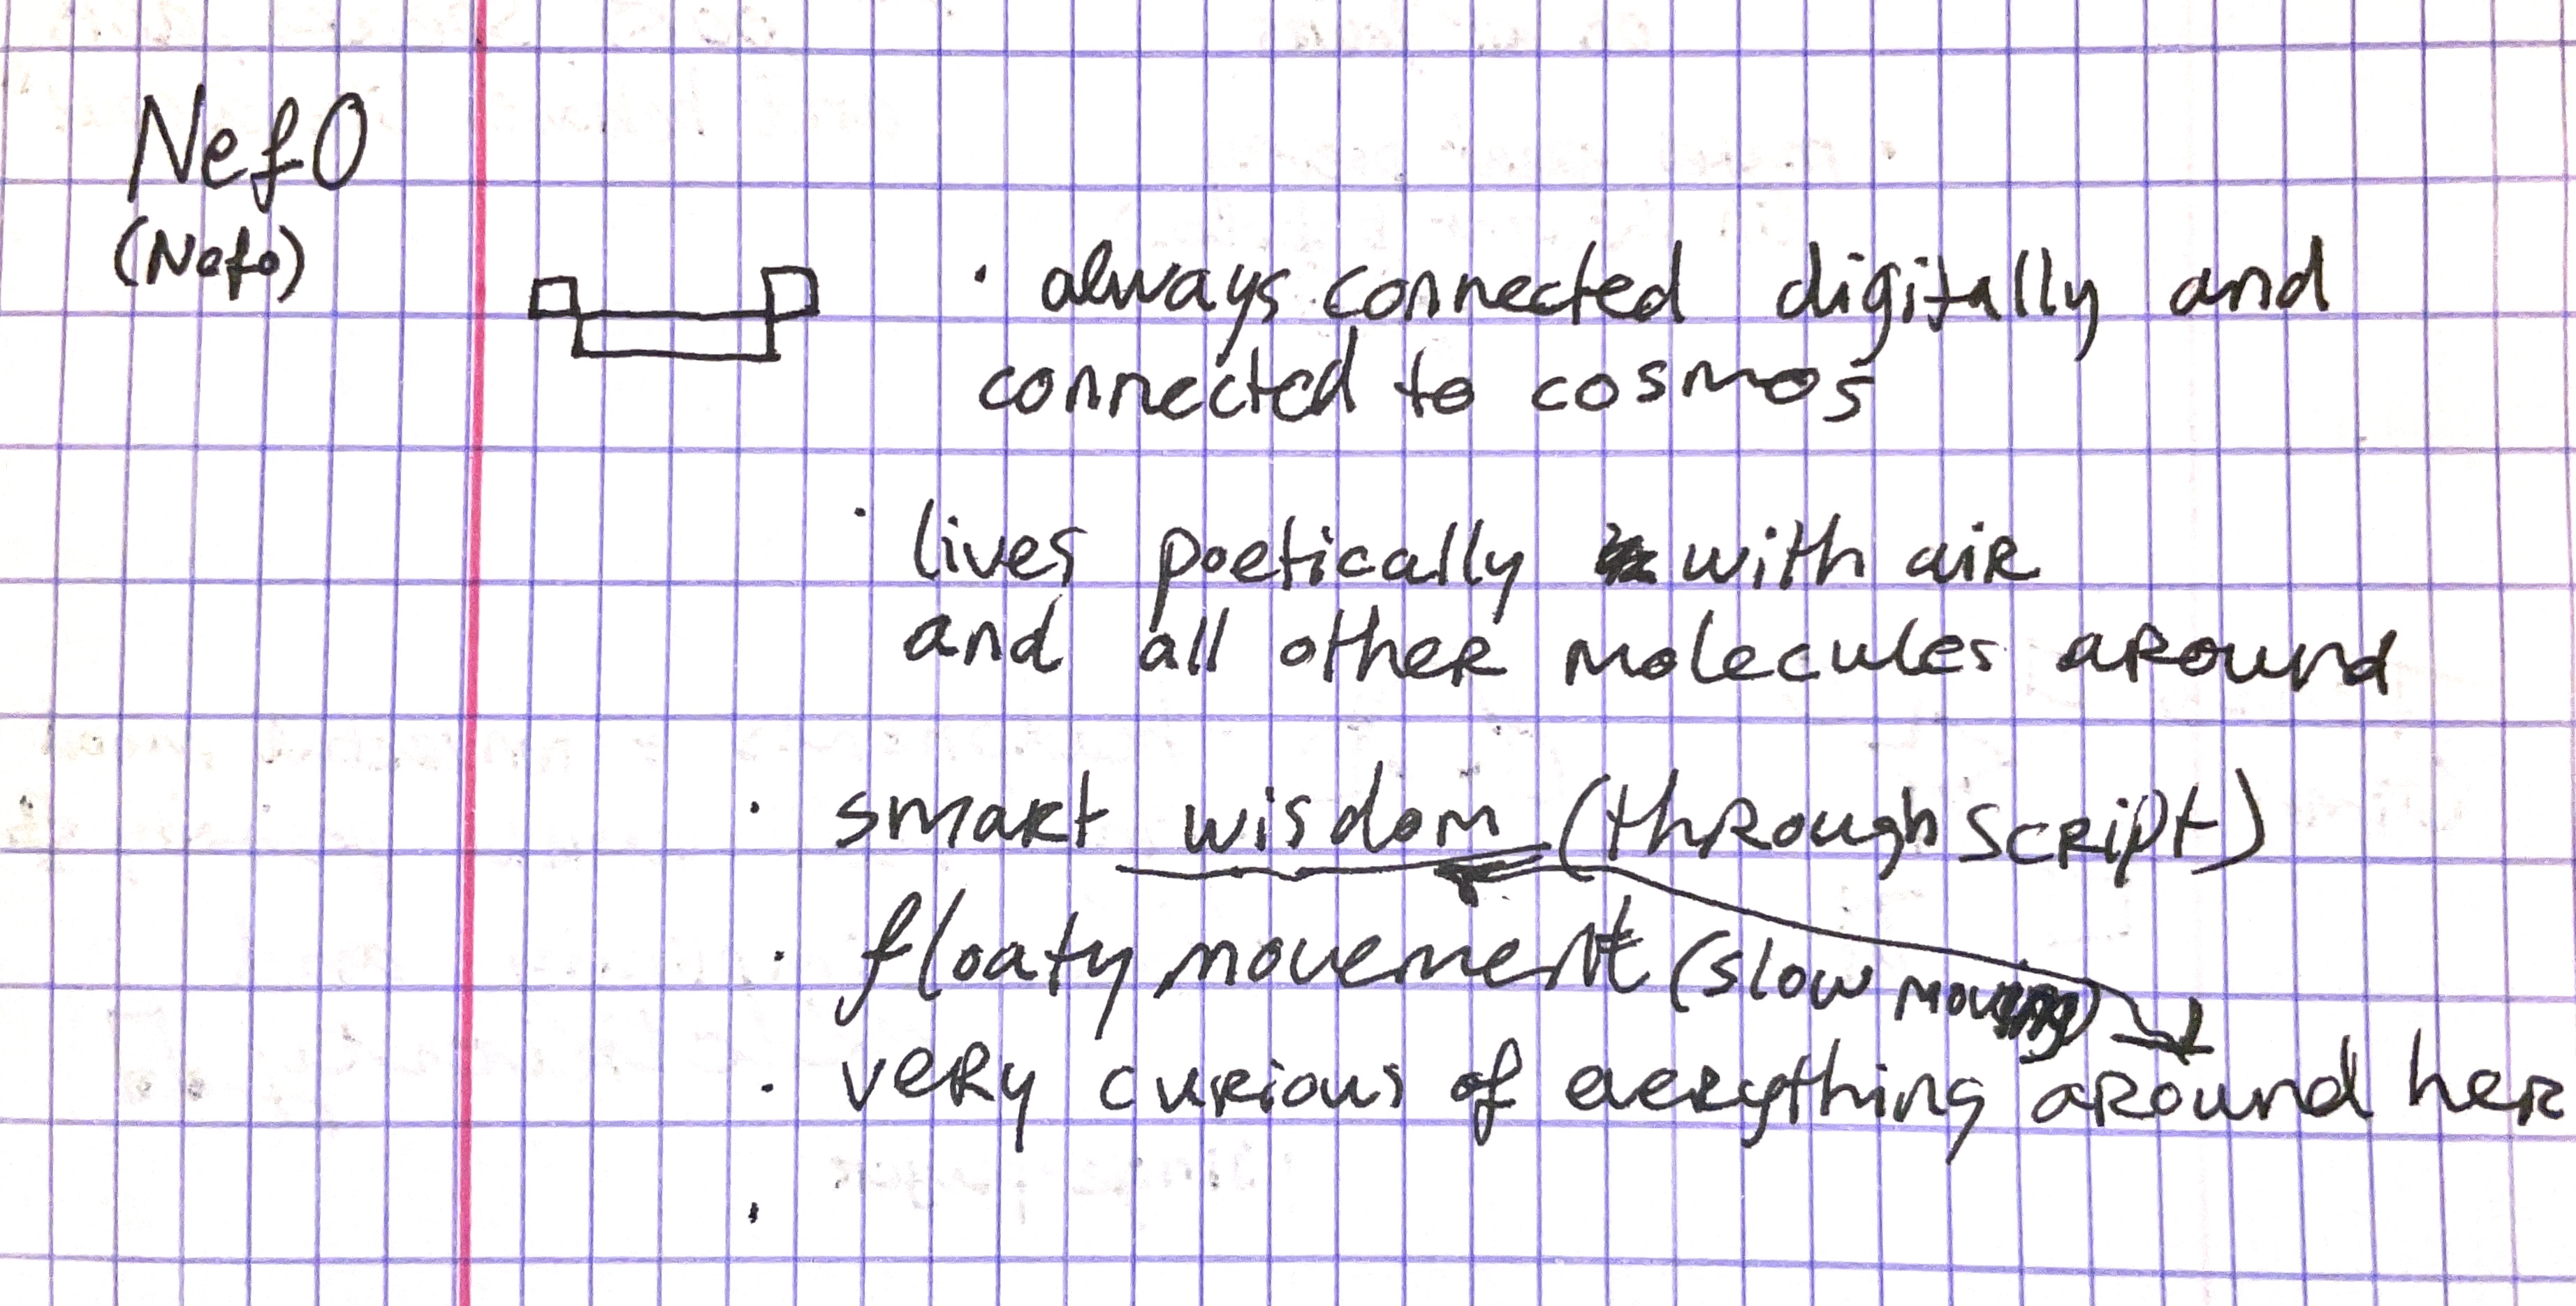 Nef0
(Nefo)
· always connected digitally and
connected to cosmos
· lives poetically with air
and all other molecules around
· smart wisdom (through script)
· floaty movement (slow moving)
· very curious of everything around her
·